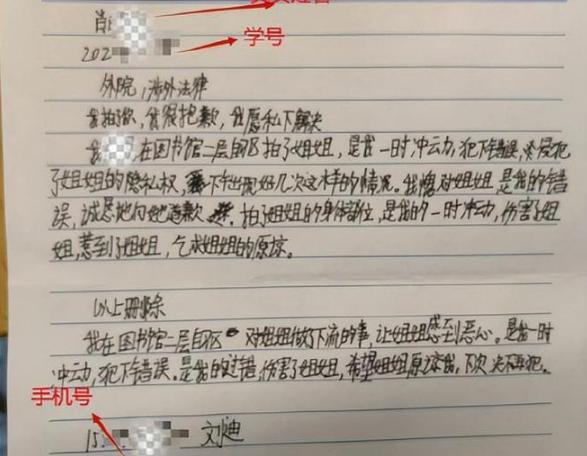 肖
学号
202
外院,涉外法律
我拍你,我很抱歉,我愿私下解决
我 ,在图书馆二层自区拍了姐姐,是我一时冲动,犯下错误,侵犯
了姐姐的隐私权, 下出现好几次这样的情况。我愧对姐姐 是我的错
误,诚恳地向她道歉 。拍了姐姐的身体部位,是我的一时冲动,伤害了姐
姐,惹到了姐姐,乞求姐姐的原谅。
以上删除
我在图书馆二层自区 对姐姐做了下流的事,让姐姐感到恶心。是我一时
冲动,犯下错误。是我的过错,伤害了姐姐,希望姐姐原谅我,下次决不再犯。
手机号
15